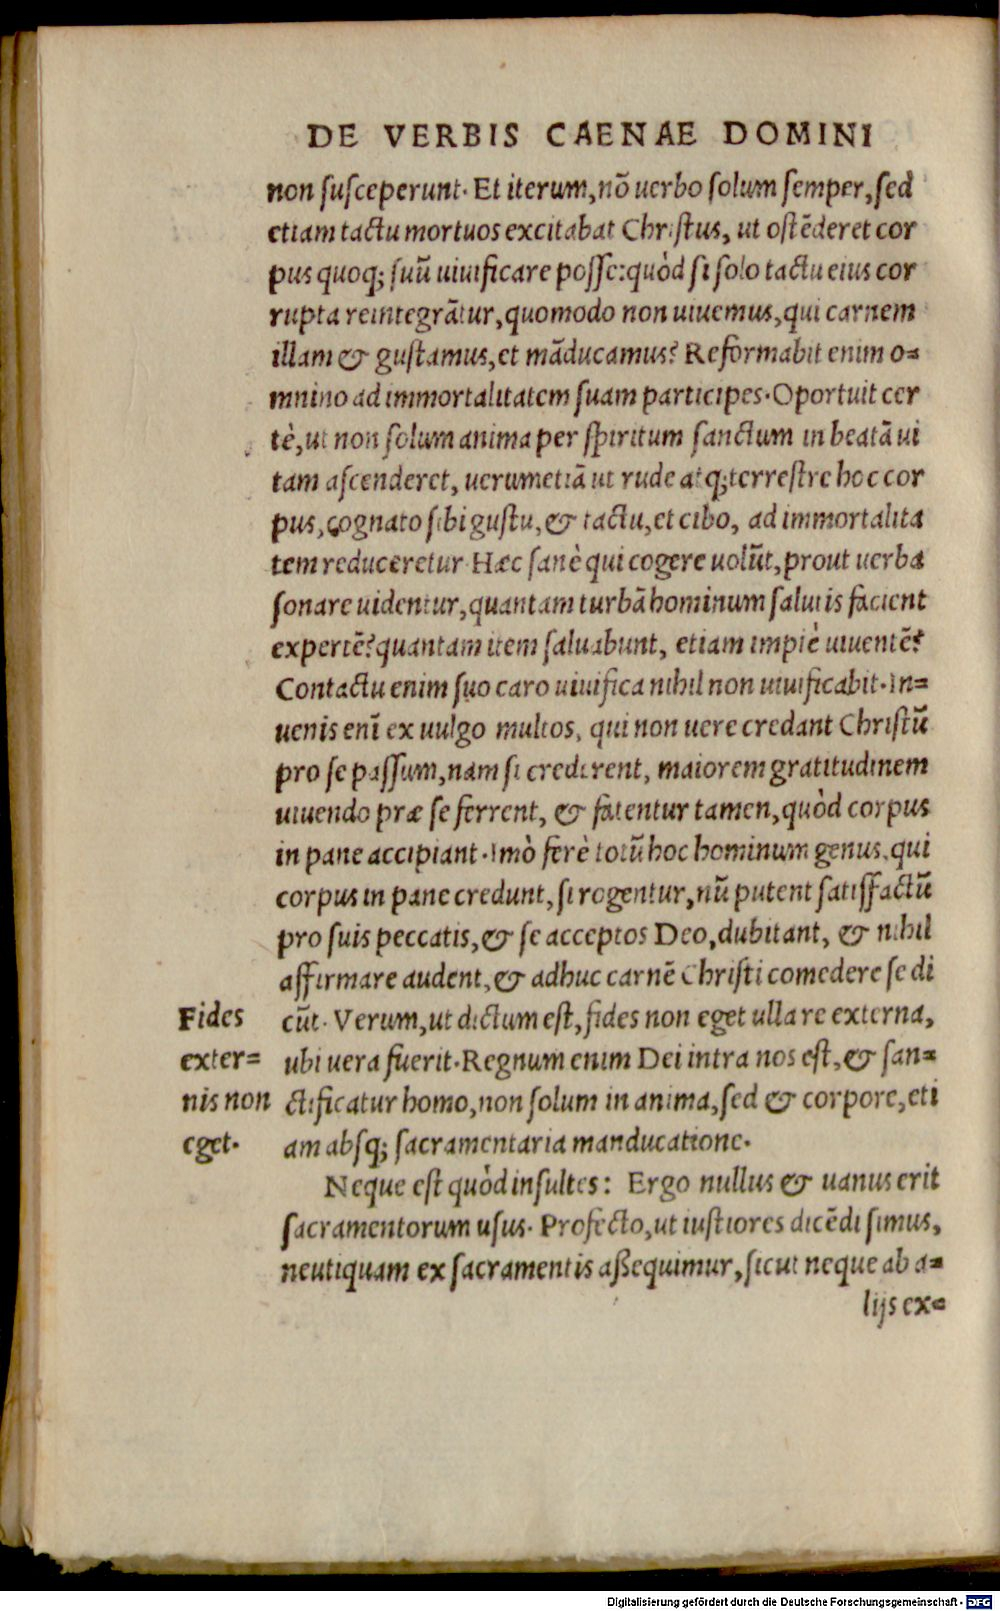 DE VERBIS CAENAE DOMINI
non susceperunt. Et iterum, nõ uerbo solum semper, sed
etiam tactu mortuos excitabat Christus, ut ostẽderet cor
pus quoq; suũ uiuificare posse: quòd si solo tactu eius cor
rupta reintegrãtur, quomodo non uiuemus, qui carnem
illam & gustamus, et mãducamus? Reformabit enim o=
mnino ad immortalitatem suam participes. Oportuit cer
tè, ut non solum anima per spiritum sanctum in beatã ui
tam ascenderet, uerumetiã ut rude atq; terrestre hoc cor
pus, cognato sibi gustu, & tactu, et cibo, ad immortalita
tem reduceretur. Hæc sanè qui cogere uolũt, prout uerba
sonare uidentur, quantam turbã hominum salutis facient
expertẽ? quantam item saluabunt, etiam impiè uiuentẽ?
Contactu enim suo caro uiuifica nihil non uiuificabit. In=
uenis enĩ ex uulgo multos, qui non uere credant Christũ
pro se passum, nam si crederent, maiorem gratitudinem
uiuendo præ se ferrent, & fatentur tamen, quòd corpus
in pane accipiant. Imò ferè totũ hoc hominum genus, qui
corpus in pane credunt, si rogentur, nũ putent satisfactũ
pro suis peccatis, & se acceptos Deo, dubitant, & nihil
affirmare audent, & adhuc carnẽ Christi comedere se di
cũt. Verum, ut dictum est, fides non eget ulla re externa,
ubi uera fuerit. Regnum enim Dei intra nos est, & san=
ctificatur homo, non solum in anima, sed & corpore, eti
am absq; sacramentaria manducatione.
Fides
exter=
nis non
eget.
Neque est quòd insultes: Ergo nullus & uanus erit
sacramentorum usus. Profecto, ut iustiores dicẽdi simus,
neutiquam ex sacramentis aßequimur, sicut neque ab a=
lijs ex=
Digitalisierung gefördert durch die Deutsche Forschungsgemeinschaft - DFG